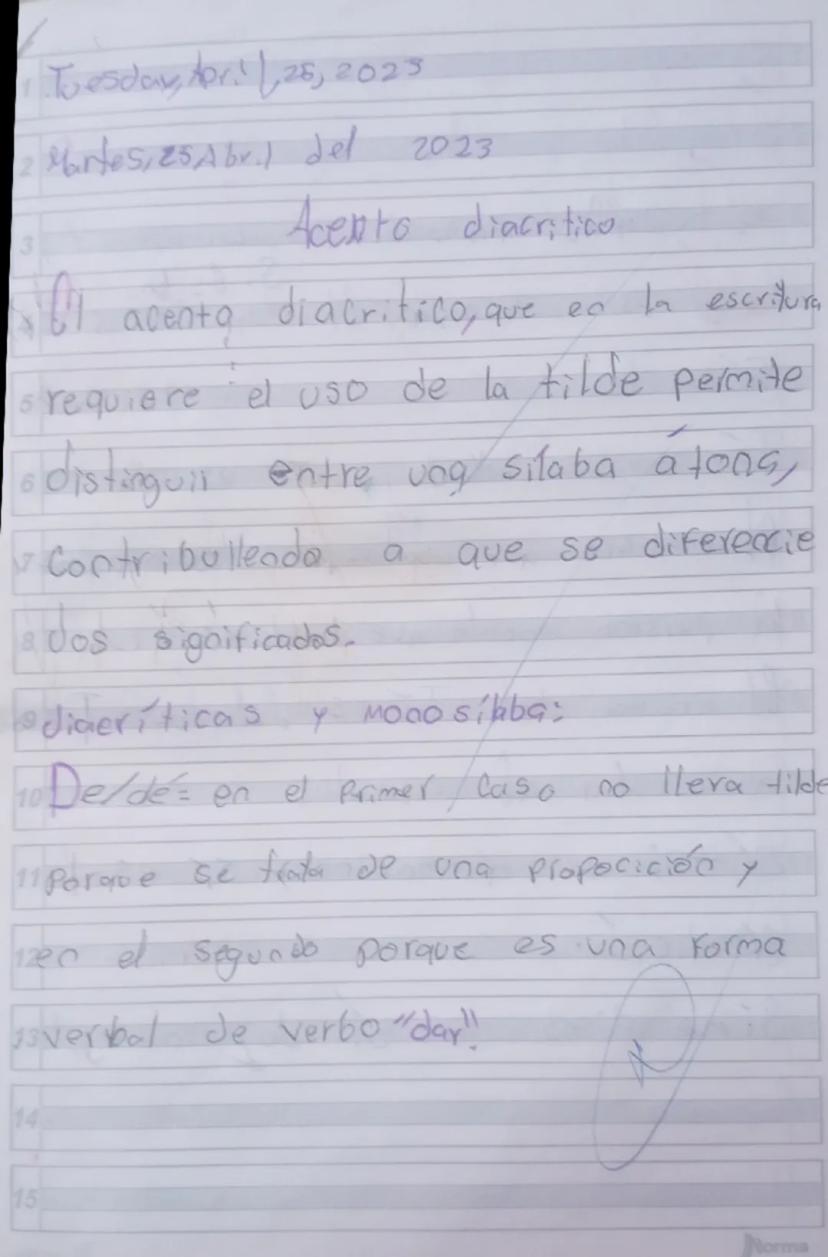 Tuesday, April, 25, 2023
Martes, 25, Abril del 2023
Acento diacritico
El acento diacritico, que en la escritura
requiere el uso de la tilde permite
distinguir entre una silaba átona,
contribulleado a que se diferencie
dos significados.
diacríticas y monosílaba:
De/dé= en el primer caso no lleva tilde
porque se trata de una propocición y
en el segundo porque es una forma
verbal de verbo "dar".
Norma